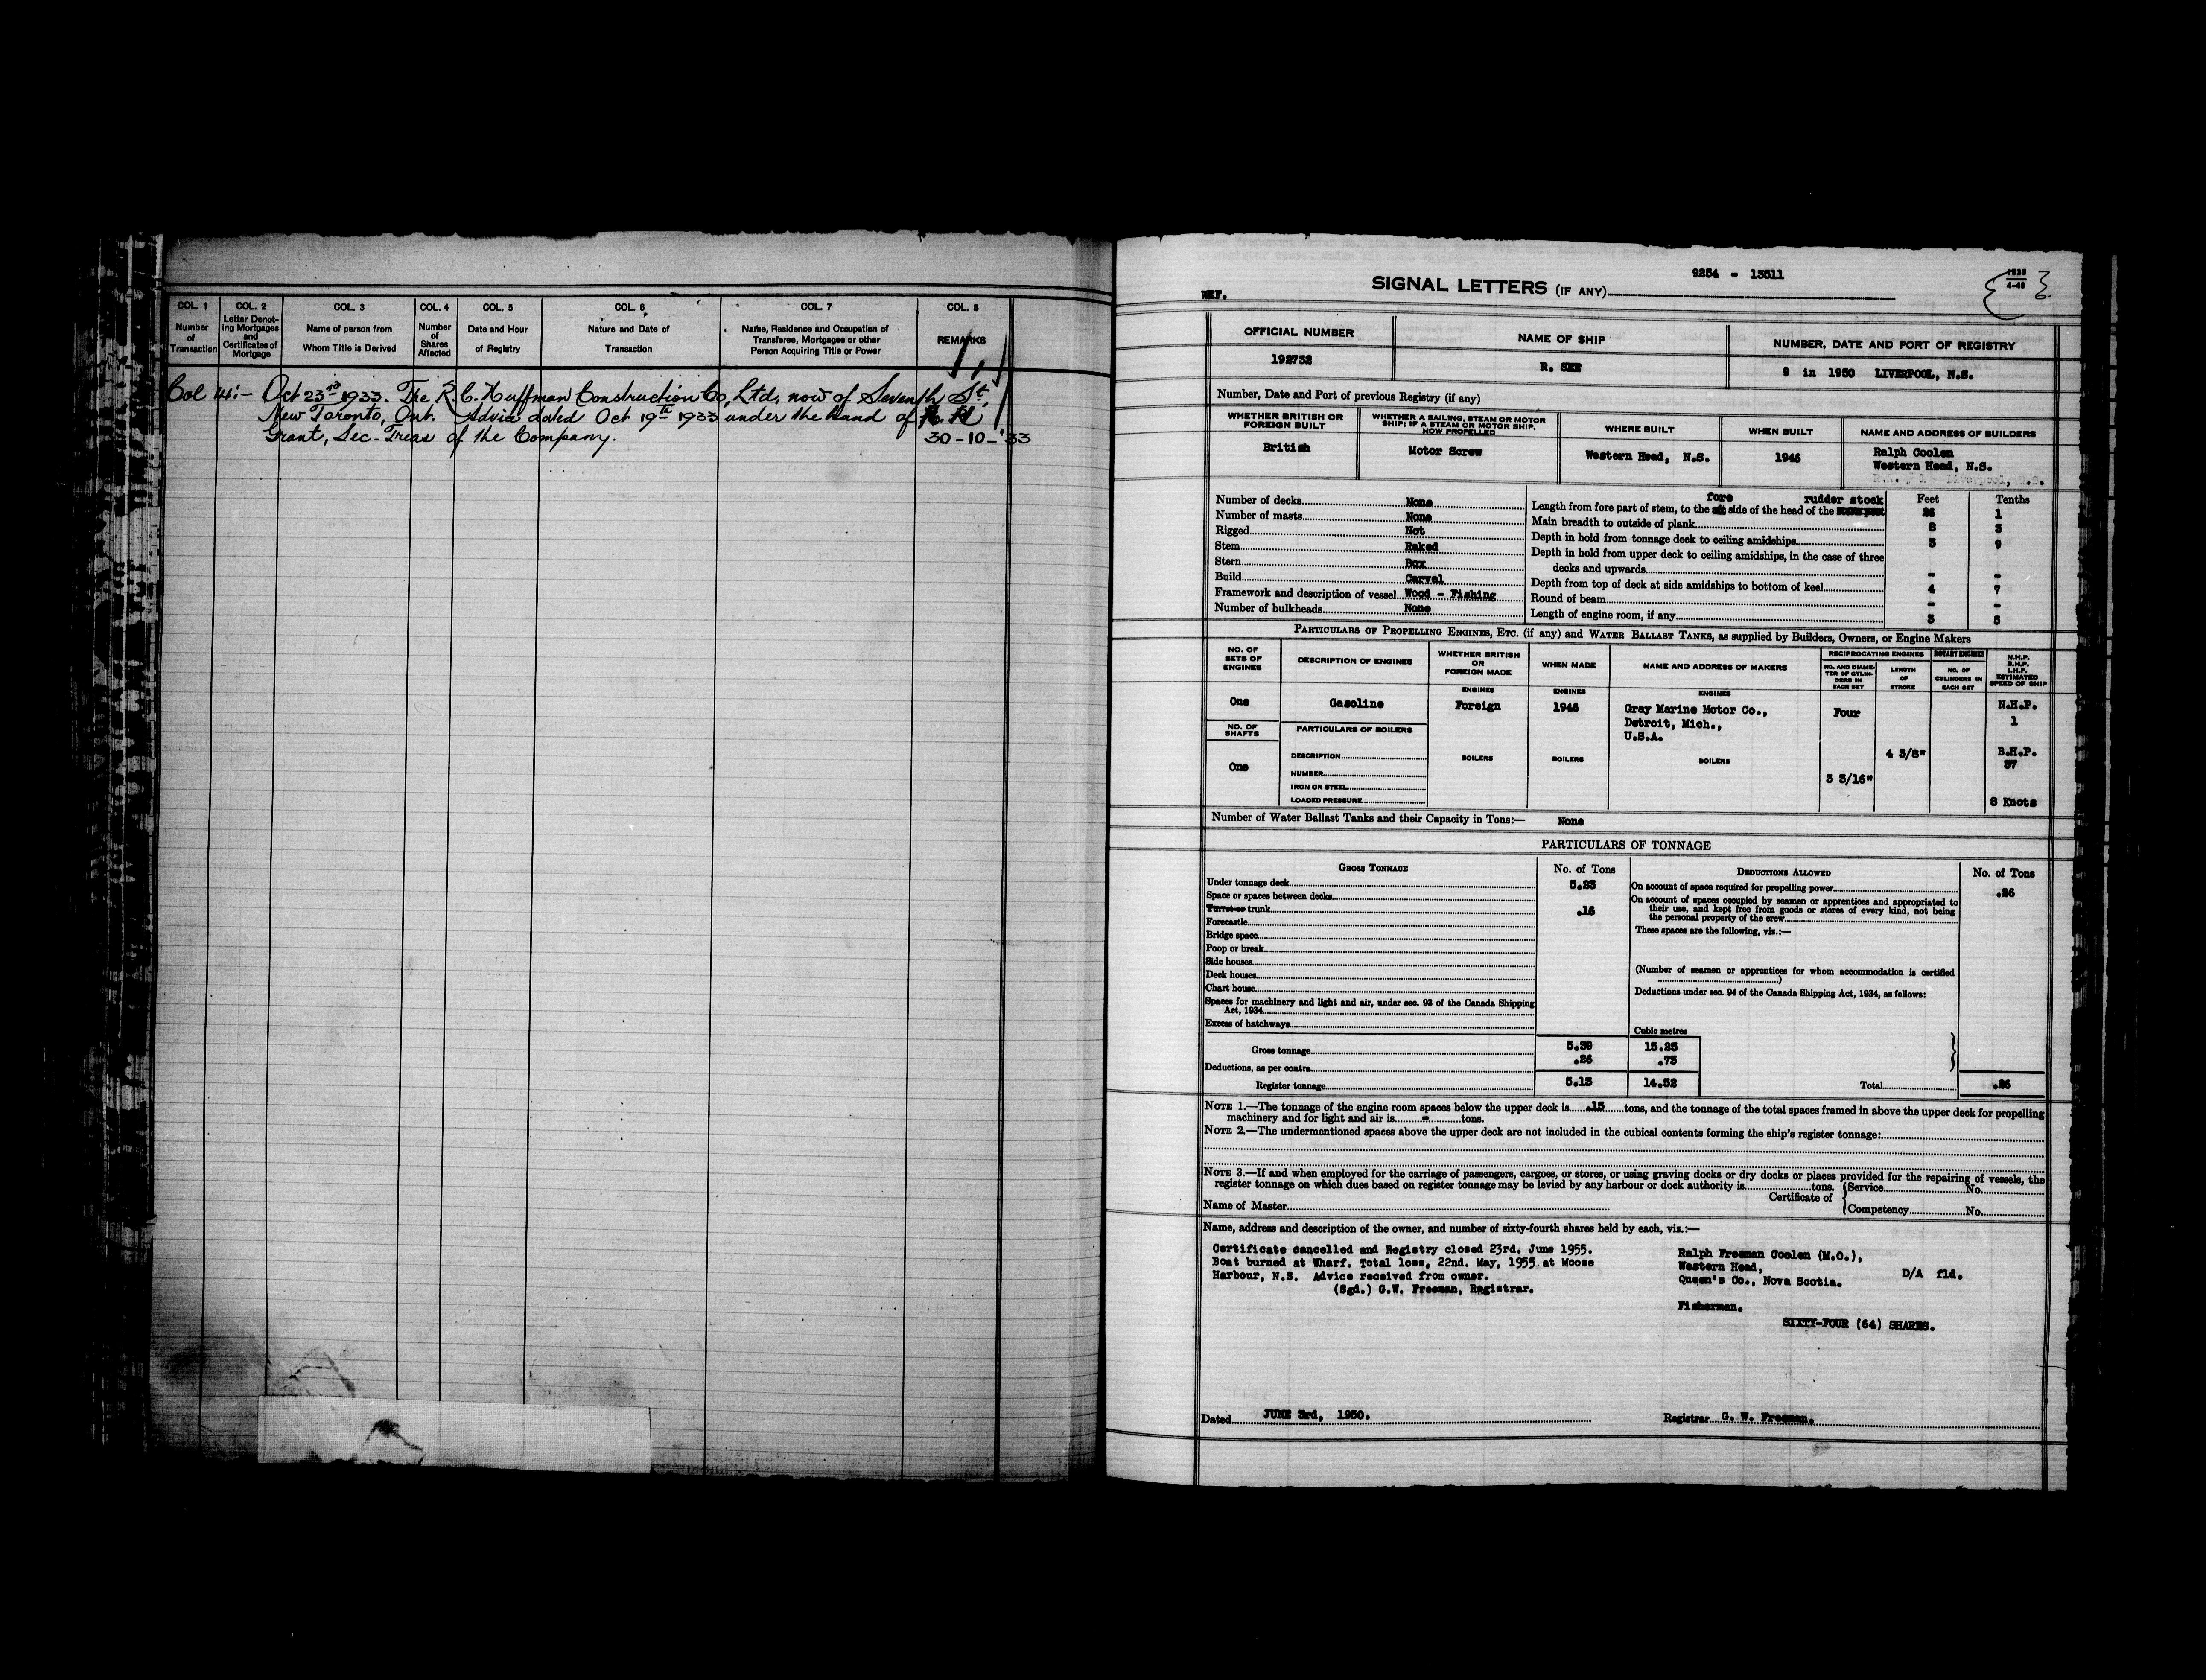 COL. 1 COL. 2 COL. 3 COL. 4 COL. 5 COL. 6 COL. 7 COL. 8
Number of Transaction
Letter Denoting Mortgages and Certificates of Mortgage
Name of person from Whom Title is Derived
Number of Shares Affected
Date and Hour of Registry
Nature and Date of Transaction
Name, Residence and Occupation of Transferee, Mortgagee or other Person Acquiring Title or Power
REMARKS
Col 14:- Oct 23rd 1933. The R. C. Huffman Construction Co, Ltd, now of Seventh St,
New Toronto, Ont. Advice dated Oct 19th 1933 under the hand of
Grant, Sec-Treas of the Company. 30-10-'33
9254 - 13511
SIGNAL LETTERS (IF ANY)
WEF.
1935
4-49
OFFICIAL NUMBER
NAME OF SHIP
NUMBER, DATE AND PORT OF REGISTRY
192752
R.
9 in 1950 LIVERPOOL, N.S.
Number, Date and Port of previous Registry (if any)
WHETHER BRITISH OR FOREIGN BUILT
WHETHER A SAILING, STEAM OR MOTOR SHIP; IF A STEAM OR MOTOR SHIP, HOW PROPELLED
WHERE BUILT
WHEN BUILT
NAME AND ADDRESS OF BUILDERS
British
Motor Screw
Western Head, N.S.
1946
Ralph Coolen
Western Head, N.S.
Number of decks None
Number of masts None
Rigged Not
Stem Raked
Stern Box
Build Carvel
Framework and description of vessel Wood - Fishing
Number of bulkheads None
Feet Tenths
fore rudder stock
Length from fore part of stem, to the aft side of the head of the stern post 26 1
Main breadth to outside of plank 8 3
Depth in hold from tonnage deck to ceiling amidships 3 9
Depth in hold from upper deck to ceiling amidships, in the case of three
decks and upwards - -
Depth from top of deck at side amidships to bottom of keel 4 7
Round of beam - -
Length of engine room, if any 3 5
PARTICULARS OF PROPELLING ENGINES, ETC. (if any) and WATER BALLAST TANKS, as supplied by Builders, Owners, or Engine Makers
NO. OF SETS OF ENGINES
DESCRIPTION OF ENGINES
WHETHER BRITISH OR FOREIGN MADE
WHEN MADE
NAME AND ADDRESS OF MAKERS
RECIPROCATING ENGINES
ROTARY ENGINES
NO. AND DIAMETER OF CYLINDERS IN EACH SET
LENGTH OF STROKE
NO. OF CYLINDERS IN EACH SET
N.H.P.
B.H.P.
I.H.P.
ESTIMATED SPEED OF SHIP
ENGINES ENGINES ENGINES
One
Gasoline
Foreign
1946
Gray Marine Motor Co.,
Detroit, Mich.,
U.S.A.
Four
N.H.P.
1
NO. OF SHAFTS
PARTICULARS OF BOILERS
One
DESCRIPTION
NUMBER
IRON OR STEEL
LOADED PRESSURE
BOILERS BOILERS BOILERS
3 3/16"
4 3/8"
B.H.P.
37
8 Knots
Number of Water Ballast Tanks and their Capacity in Tons:— None
PARTICULARS OF TONNAGE
GROSS TONNAGE
No. of Tons
DEDUCTIONS ALLOWED
No. of Tons
Under tonnage deck 5.23
Space or spaces between decks
Turret or trunk .16
Forecastle
Bridge space
Poop or break
Side houses
Deck houses
Chart house
Spaces for machinery and light and air, under sec. 93 of the Canada Shipping
Act, 1934
Excess of hatchways
On account of space required for propelling power .26
On account of spaces occupied by seamen or apprentices and appropriated to
their use, and kept free from goods or stores of every kind, not being
the personal property of the crew
These spaces are the following, vis.:—
(Number of seamen or apprentices for whom accommodation is certified
)
Deductions under sec. 94 of the Canada Shipping Act, 1934, as follows:
Cubic metres
Gross tonnage 5.39 15.25
Deductions, as per contra .26 .73
Register tonnage 5.13 14.52
Total .26
NOTE 1.—The tonnage of the engine room spaces below the upper deck is .15 tons, and the tonnage of the total spaces framed in above the upper deck for propelling
machinery and for light and air is - tons.
NOTE 2.—The undermentioned spaces above the upper deck are not included in the cubical contents forming the ship's register tonnage:
NOTE 3.—If and when employed for the carriage of passengers, cargoes, or stores, or using graving docks or dry docks or places provided for the repairing of vessels, the
register tonnage on which dues based on register tonnage may be levied by any harbour or dock authority is tons.
Name of Master
Certificate of
Service No.
Competency No.
Name, address and description of the owner, and number of sixty-fourth shares held by each, vis.:—
Certificate cancelled and Registry closed 23rd. June 1955.
Boat burned at Wharf. Total loss, 22nd. May, 1955 at Moose
Harbour, N.S. Advice received from owner.
(Sgd.) G.W. Freeman, Registrar.
Ralph Freeman Coolen (M.O.),
Western Head,
Queen's Co., Nova Scotia.
D/A fld.
Fisherman.
SIXTY-FOUR (64) SHARES.
Dated JUNE 3rd, 1950.
Registrar G. W. Freeman.